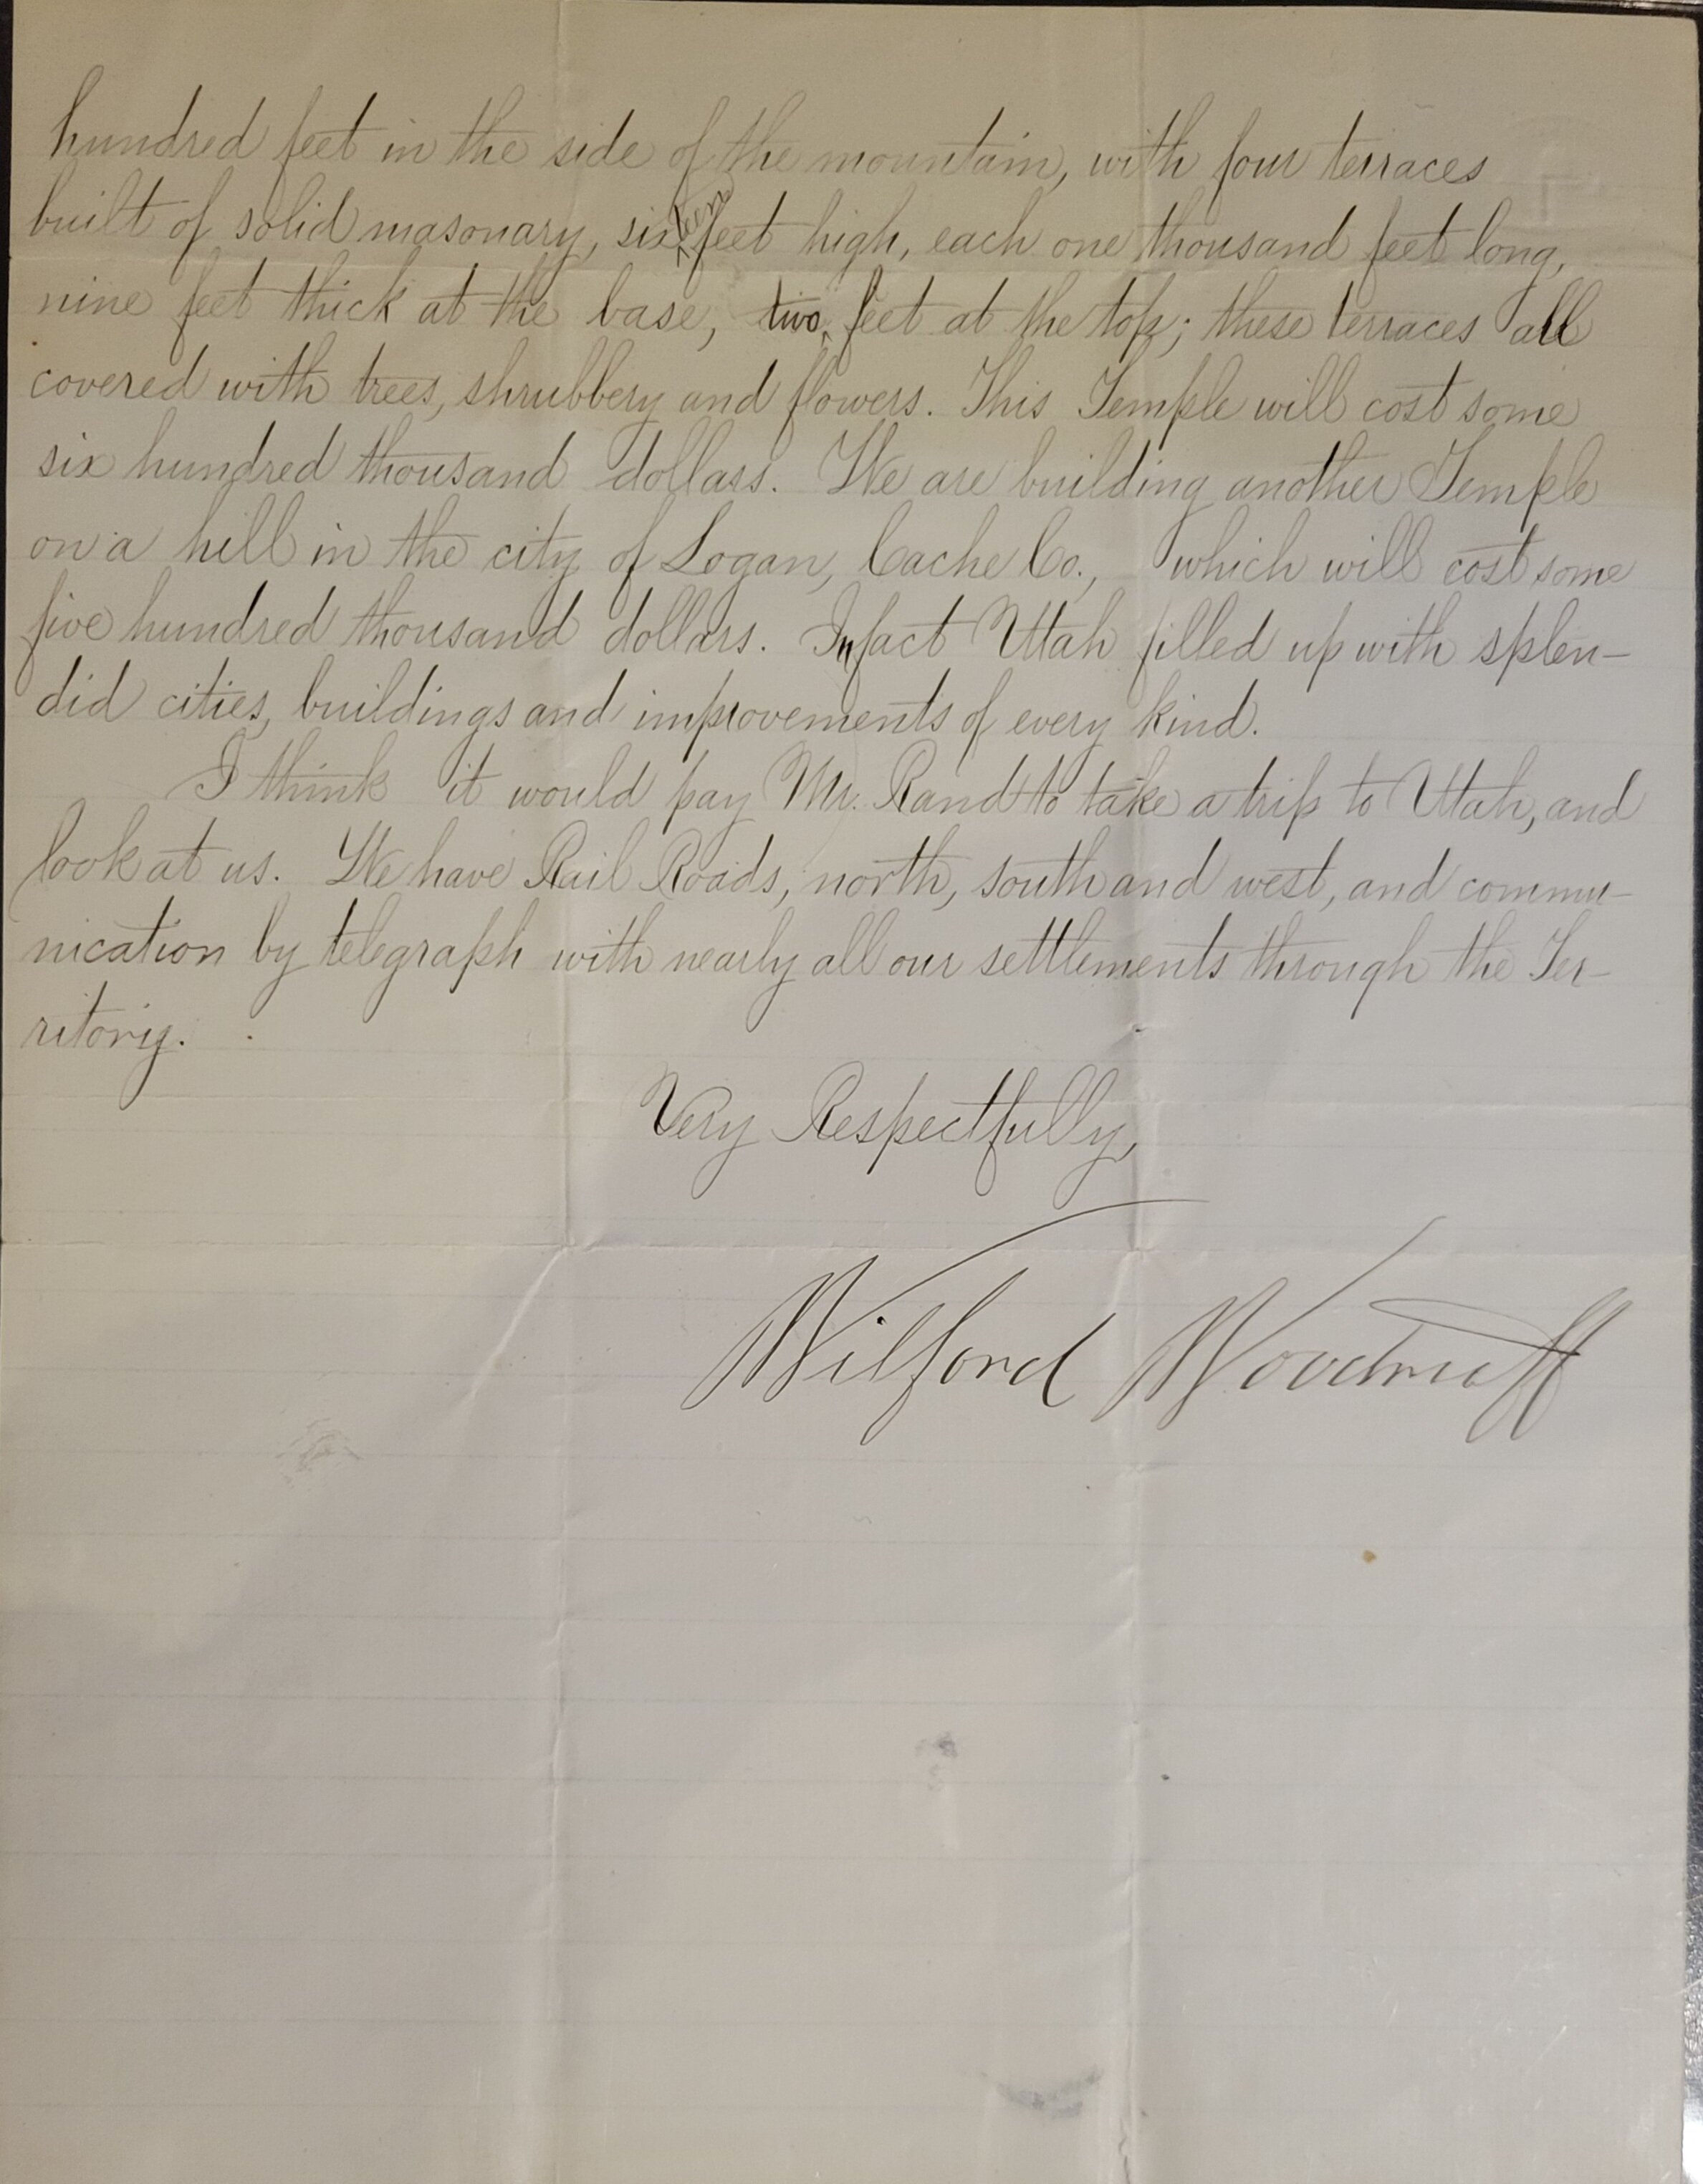 hundred feet in the side of the mountain, with four terraces
built of solid masonary, sixteen feet high, each one thousand feet long,
nine feet thick at the base, two feet at the top; these terraces all
covered with trees, shrubbery and flowers. This Temple will cost some
six hundred thousand dollars. We are building another Temple
on a hill in the city of Logan, Cache Co., which will cost some
five hundred thousand dollars. Infact Utah filled up with splen-
did cities, buildings and improvements of every kind.
I think it would pay Mr. Rand to take a trip to Utah, and
look at us. We have Rail Roads, north, south and west, and commu-
nication by telegraph with nearly all our settlements through the Ter-
ritory.
Very Respectfully,
Wilford Woodruff